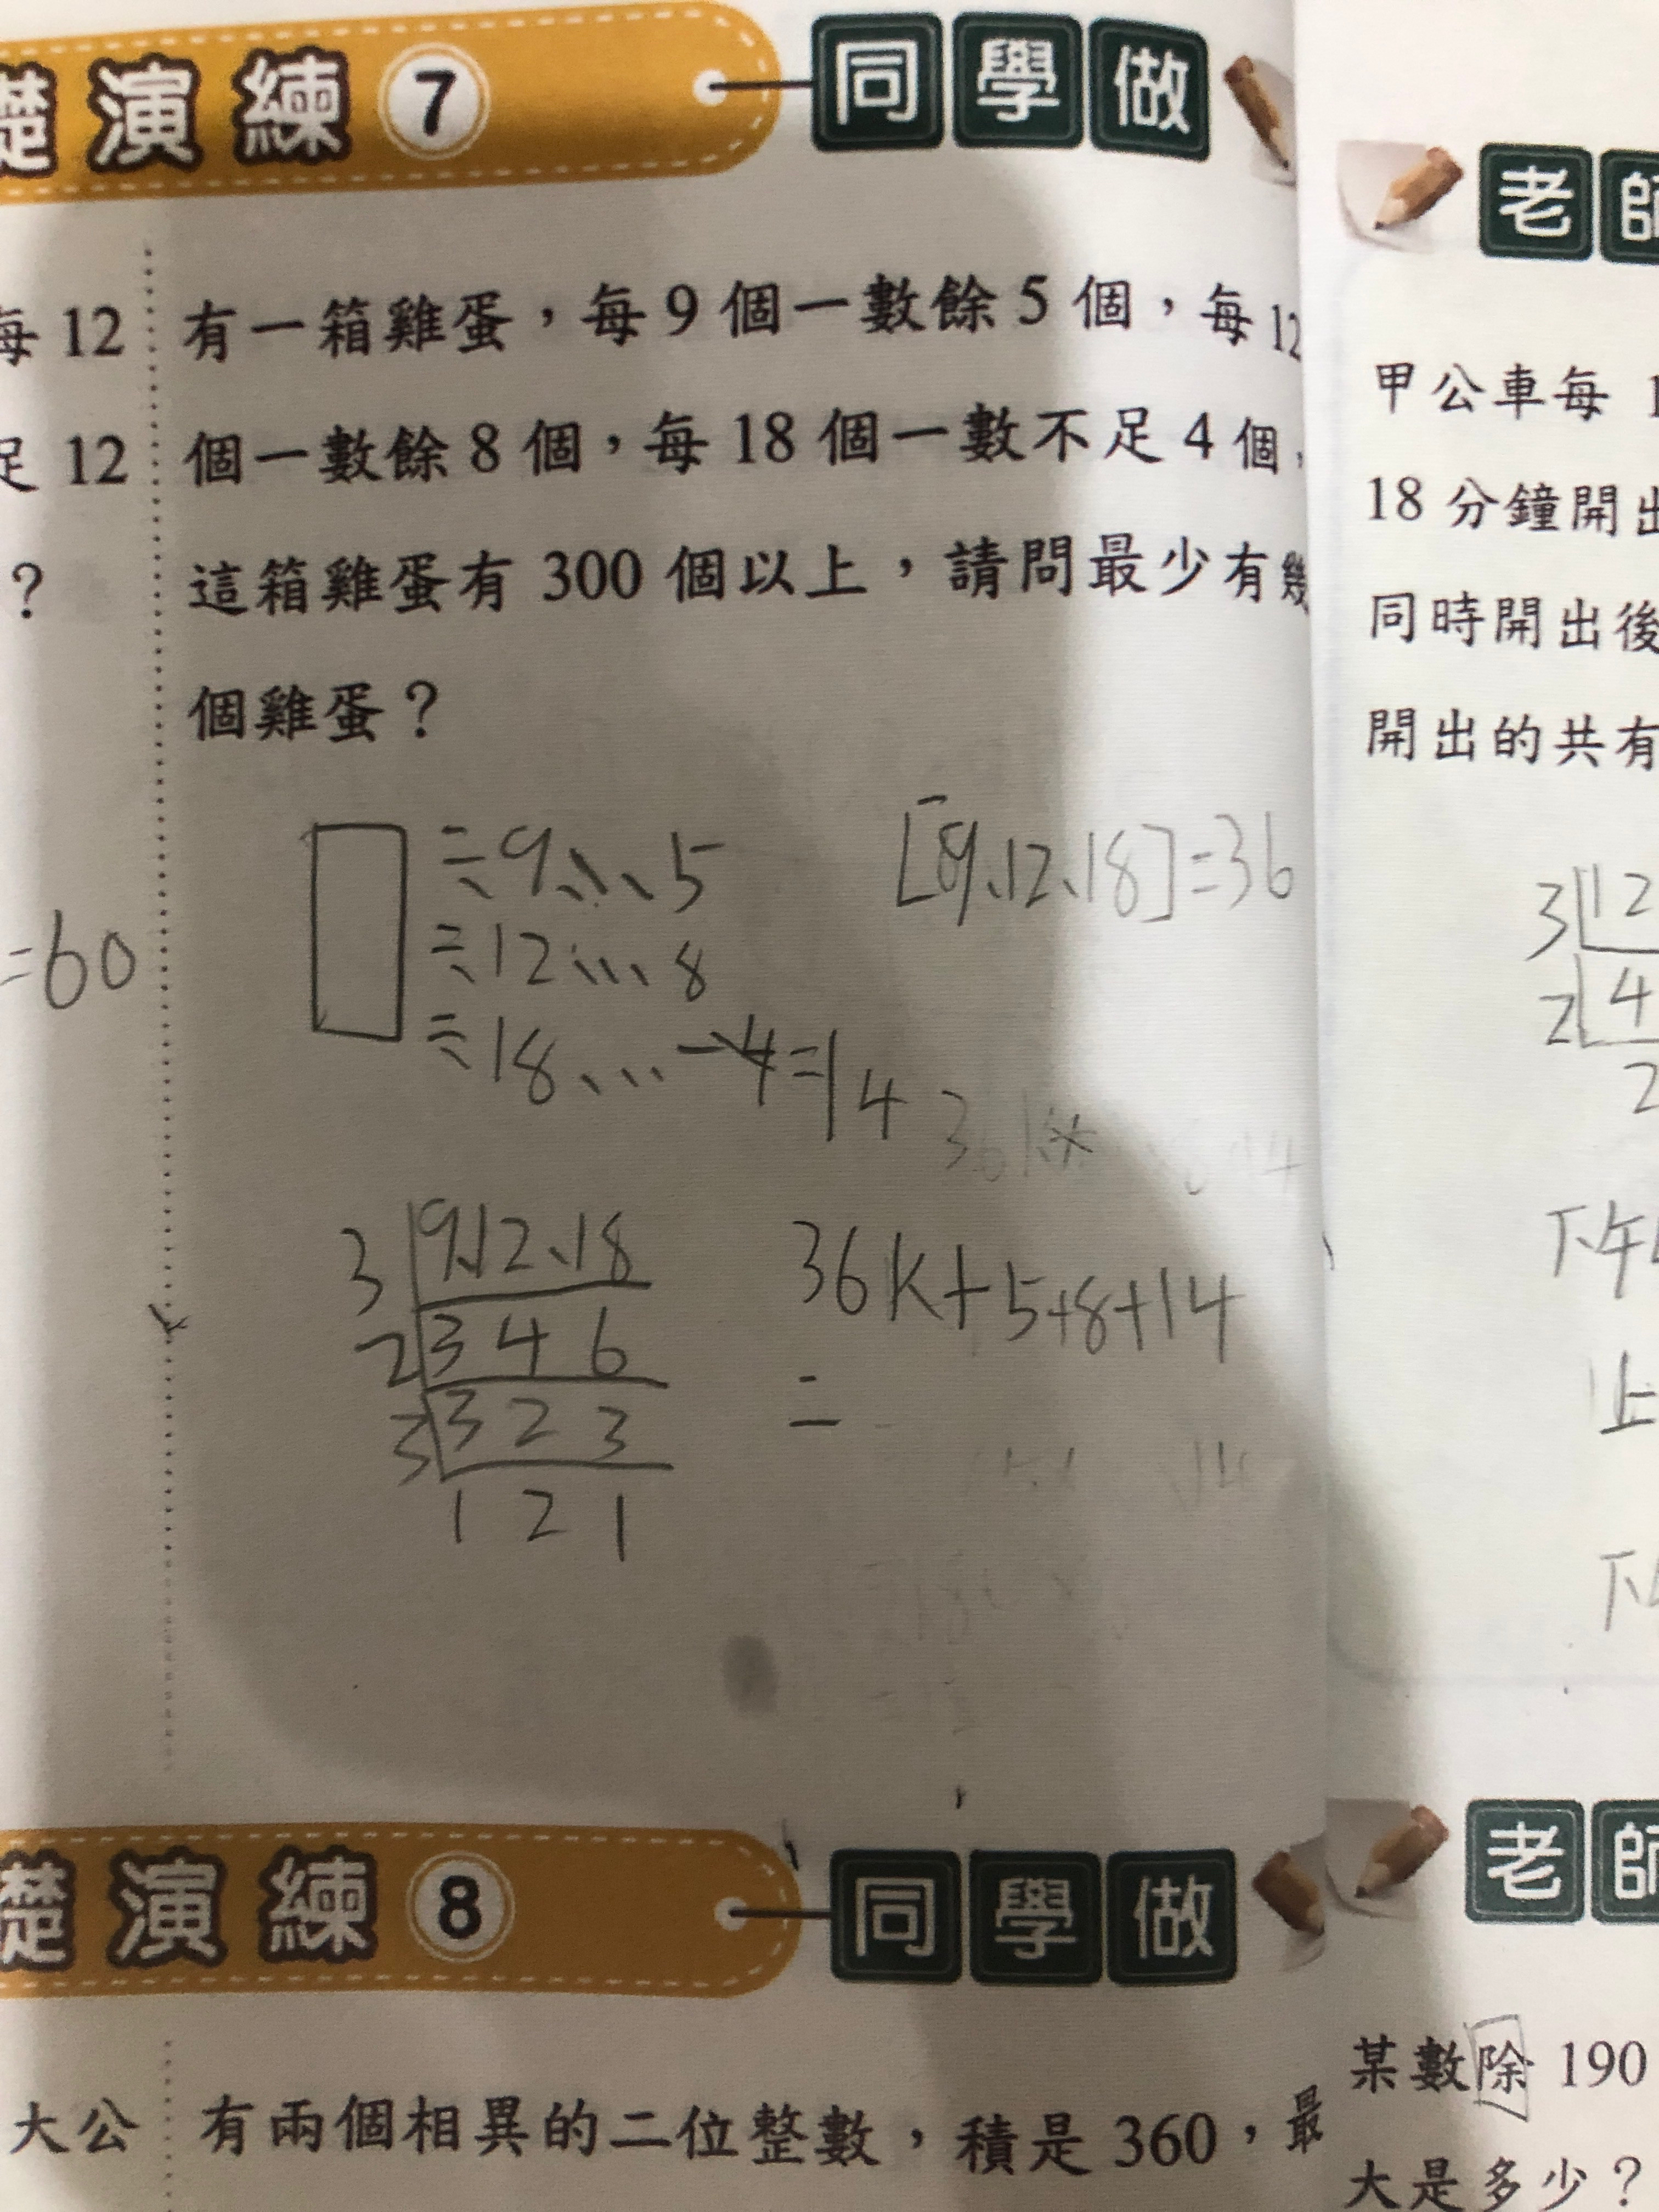 礎演練 7 同學做
每 12
足 12
?
=60
有一箱雞蛋,每 9 個一數餘 5 個,每 12
個一數餘 8 個,每 18 個一數不足 4 個,
這箱雞蛋有 300 個以上,請問最少有幾
個雞蛋?
÷9、、、5
÷12、、、8
÷18、…-4=14
[9、12、18]=36
3 9、12、18
2 3 4 6
3 3 2 3
1 2 1
36K+5+8+14
=
礎演練 8 同學做
大公
有兩個相異的二位整數,積是 360,最
老師
甲公車每 1
18 分鐘開出
同時開出後
開出的共有
3 12
2 4
2
下午
上
下
老師
某數除 190
大是多少?